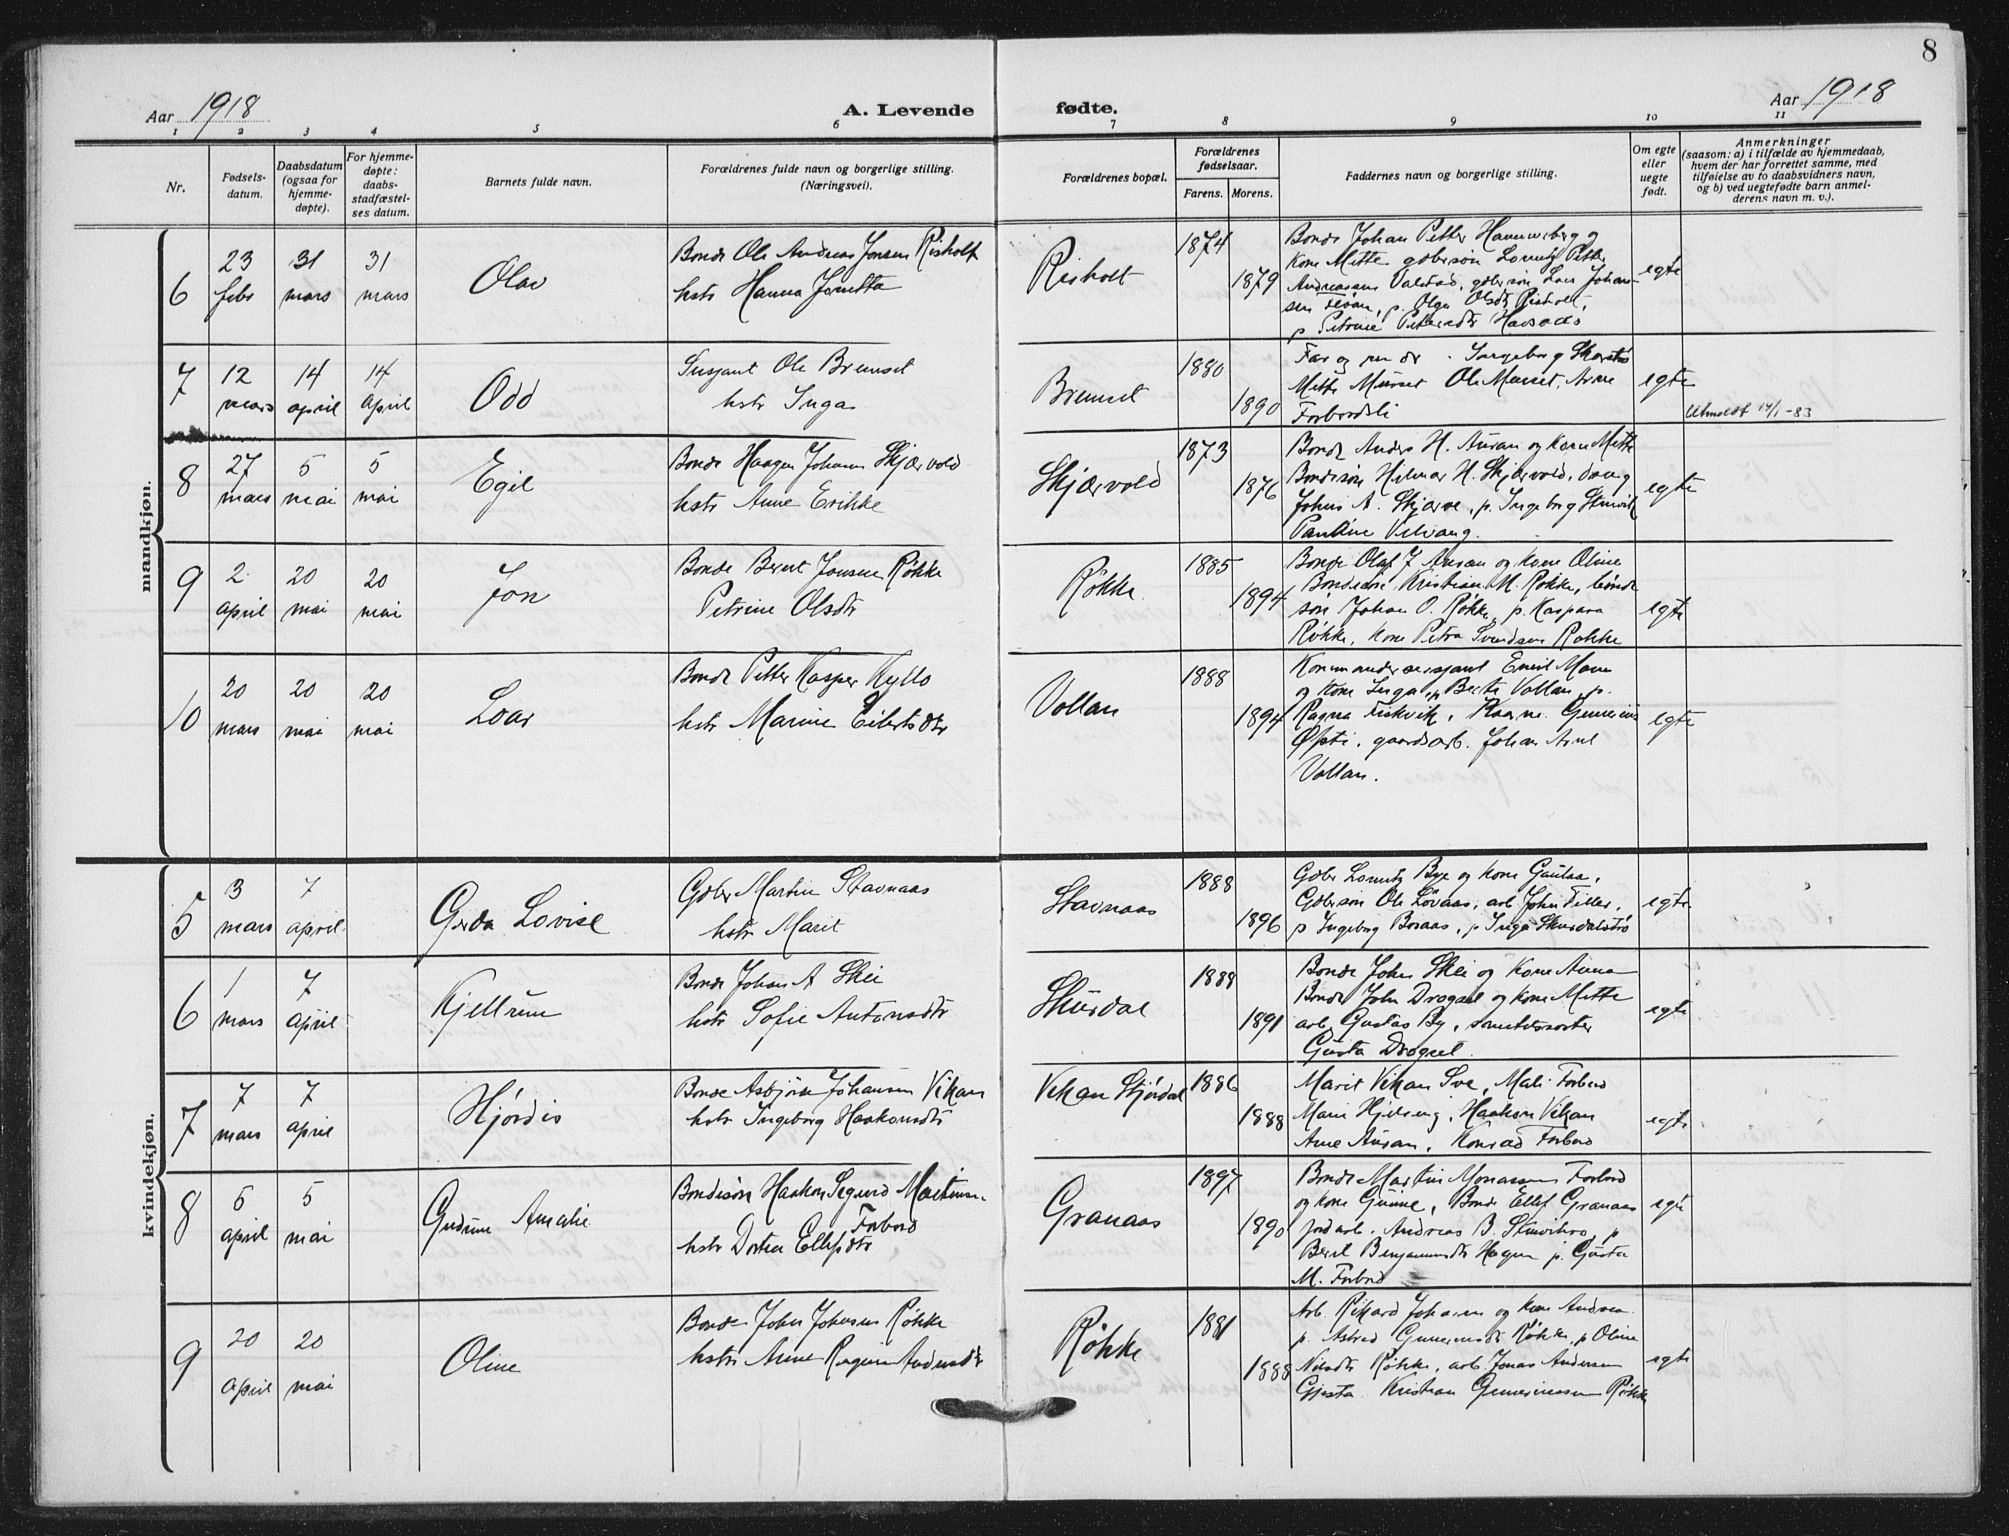 8
Aar 1918
A. Levende
fødte.
Aar 1918
1 2 3 4 5 6 7 8 9 10 11
Nr.
Fødsels-
datum.
Daabsdatum
(ogsaa for
hjemme-
døpte).
For hjemme-
døpte:
daabs-
stadfæstel-
ses datum.
Barnets fulde navn.
Forældrenes fulde navn og borgerlige stilling.
(Næringsvei).
Forældrenes bopæl.
Forældrenes
fødselsaar.
Farens. Morens.
Faddernes navn og borgerlige stilling.
Om egte
eller
uegte
født.
Anmerkninger
(saasom: a) i tilfælde av hjemmedaab,
hvem der har forrettet samme, med
tilføielse av to daabsvidners navn,
og b) ved uegtefødte barn anmel-
derens navn m. v.).
mandkjøn.
6
23 febr
31 mars
31 mars
Olav
Bonde Ole Andreas Jonsen Risholt
hstr Hanna Jonetta
Risholt
1874
1879
Bonde Johan Petter
og
kone Mette gaberson Petter
Andreassen Valstad, Lars Johan-
sen p. Olga Olsdtr Risholt
p Petrine
egte
7
12 mars
14 april
14 april
Odd
Sersjant Ole Bremset
hstr Inga
Bremset
1880
1890
Far og mor Ingeborg
Mette Ole Arne
Forbordsli
egte
Utmeldt 14/1-83
8
27 mars
5 mai
5 mai
Egil
Bonde Haagen Johansen Skjærvold
hstr Anne Erikke
Skjærvold
1873
1876
Bonde Anders H. Auran og kone Mette
Bondesøn Hilmar H. Skjærvold,
Johns A. Skjerve, p. Ingeborg
Pauline
egte
9
2 april
20 mai
20 mai
Jon
Bonde Bernt Jonsen Røkke
Petrine Olsdtr
Røkke
1885
1894
Bonde Olaf J Auran og kone Oline
Bondesøn Kristian M. Røkke, bonde
søn Johan O. Røkke, p. Kaspara
Røkke, kone Petra Svendsen Røkke
egte
10
20 mars
20 mai
20 mai
Loar
Bonde Petter Kasper Kyllo
hstr Marine Eilertsdtr
Vollan
1888
1894
Kommandersersjant
og kone Inga, p Berte Vollan, p.
Ragna Fiskvik,
Øfsti, gaardsarb. Johan Arnt
Vollan.
egte
kvindekjøn.
5
3 mars
7 april
Gerda Lovise
Gbr Martin Stavnaas
hstr Marit
Stavnaas
1888
1896
Gbr Lorentz Bye og kone
Gbrsøn Ole Lövaas, arb John Tiller,
p Ingeborg Boraas, p Inga
egte
6
1 mars
7 april
Kjellrun
Bonde Johan A Skei
hstr Sofie Antonsdtr
Skurdal
1888
1891
Bonde John Skei og kone Anna
Bonde John Drogset og kone Mette
arb. Gustav By,
Gusta Drogset
egte
7
7 mars
7 april
Hjørdis
Bonde Asbjørn Johansen Vikan
hstr Ingeborg Haakonsdtr
Vikan Skjørdal
1886
1888
Marit Vikan Sve, Mali Forbord
Marie Haakon Vikan
Arne Auran, Konrad Forbord
egte
8
6 april
5 mai
Gudrun Amalie
Bondesøn Haakon Sigurd Martinsen
Forbord
hstr Dortea Ellefsdtr
Granaas
1897
1890
Bonde Martin Monassen Forbord
og kone Gurine, Bonde Ellef Granaas
jordarb. Andreas B. p
Beret Benjaminsdtr Hagen p. Gusta
M. Forbord
egte
9
20 april
20 mai
Oline
Bonde John Johnsen Røkke
hstr Anne Regine Andersdtr
Røkke
1881
1888
Arb. Rikard Johansen og kone Andrea
p. Astrid Røkke, p Oline
Nilsdtr Røkke, arb. Jonas Andersen
Kristian Gunneriussen Røkke
egte